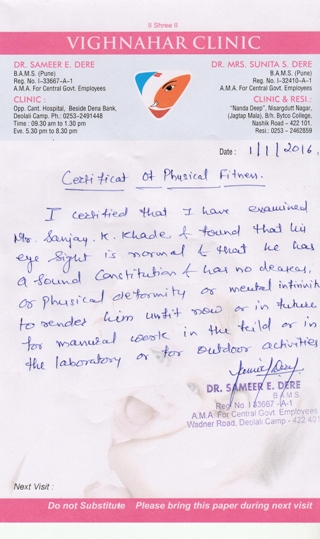 ॥ Shree ॥
VIGHNAHAR CLINIC
DR. SAMEER E. DERE
B.A.M.S. (Pune)
Reg. No. I-33667-A-1
A.M.A. For Central Govt. Employees
CLINIC :
Opp. Cant. Hospital, Beside Dena Bank,
Deolali Camp. Ph.: 0253-2491448
Time : 09.30 am to 1.30 pm
Eve. 5.30 pm to 8.30 pm
DR. MRS. SUNITA S. DERE
B.A.M.S. (Pune)
Reg. No. I-32410-A-1
A.M.A. For Central Govt. Employees
CLINIC & RESI.:
"Nanda Deep", Nisargdutt Nagar,
(Jagtap Mala), B/h. Bytco College,
Nashik Road - 422 101.
Resi.: 0253 - 2462859
Date : 1/1/2016.
Certificat Of Physical Fitness.
I certified that I have examined
Mr. Sanjay. K. Khade & found that his
eye sight is normal & that he has
a sound Constitution & has no deases,
or Physical deformity or mental
to render him unfit now or in future
for manual work in the feild or in
the laboratory or for outdoor activities
DR. SAMEER E. DERE
B.A.M.S.
Reg. No I 33667 -A-1
A.M.A. For Central Govt. Employees
Wadner Road, Deolali Camp - 422 401
Next Visit :
Do not Substitute Please bring this paper during next visit